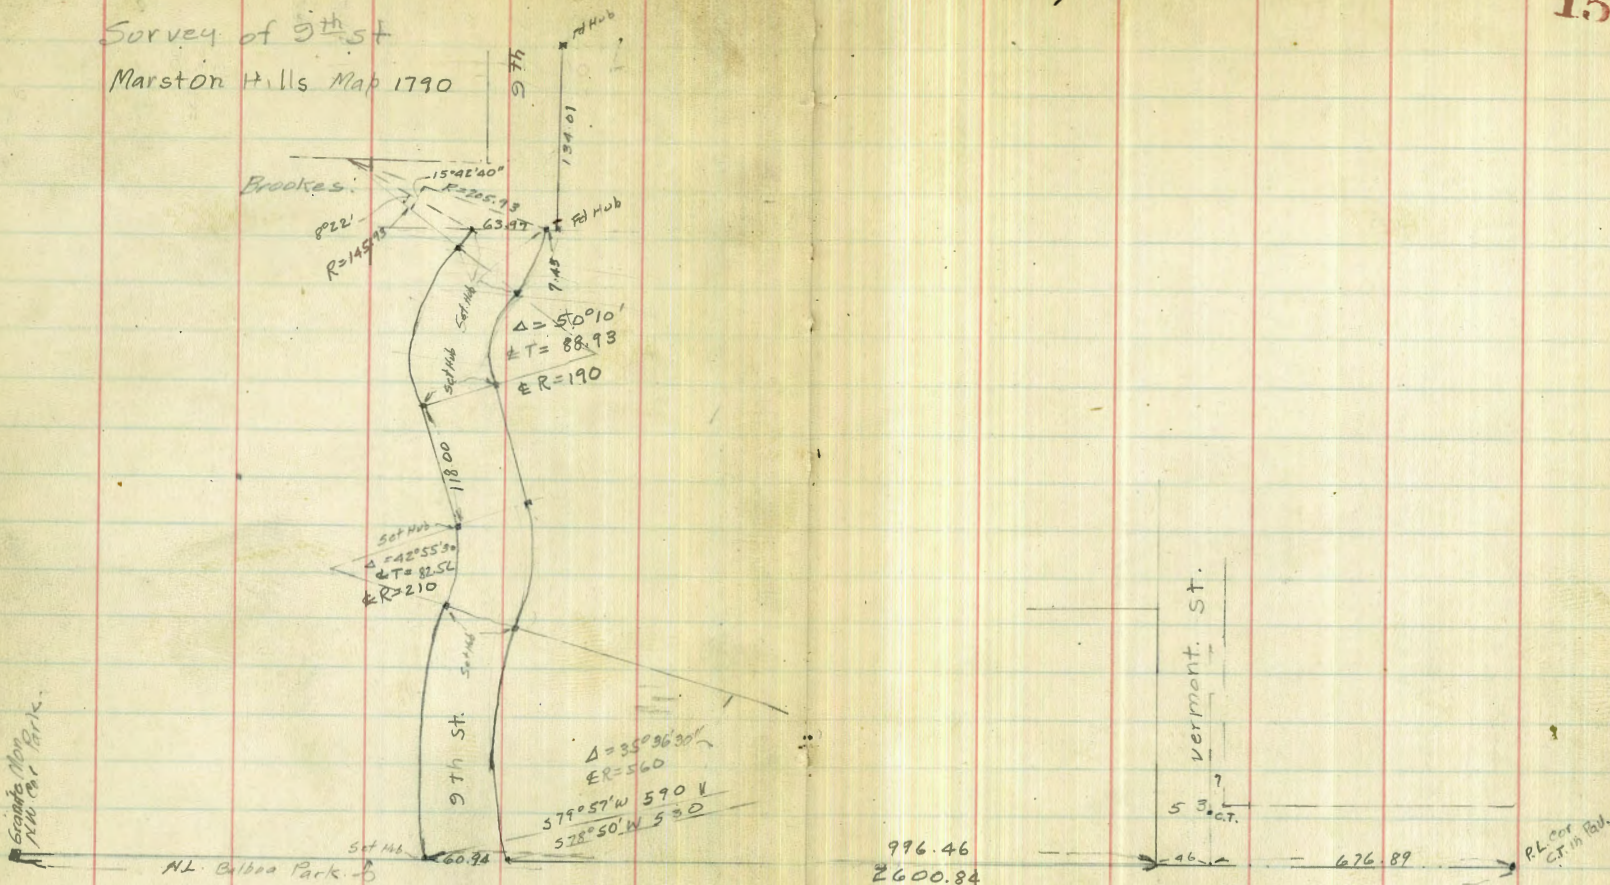 15
Survey of 9th St
Marston Hills Map 1790
9th
Fd Hub
134.01
Brookes.
15°42'40"
R=205.93
8°22'
R=145.93
63.97
Fd Hub
7.45
Set Hub
Δ= 50°10'
℄ T= 88.93
℄ R=190
Set Hub
118.00
Set Hub
Δ=42°55'30
℄ T= 82.56
℄ R=210
Set Hub
9th St.
Δ=35°36'30"
℄ R=560
S79°57'W 590
S78°50'W 530
Vermont. St.
?
53.
C.T.
Granite Mon
NW Cor Park.
Set Hub
60.94
N.L. Balboa Park.
996.46
2600.84
46
676.89
P.L. cor
C.T. in Pav.